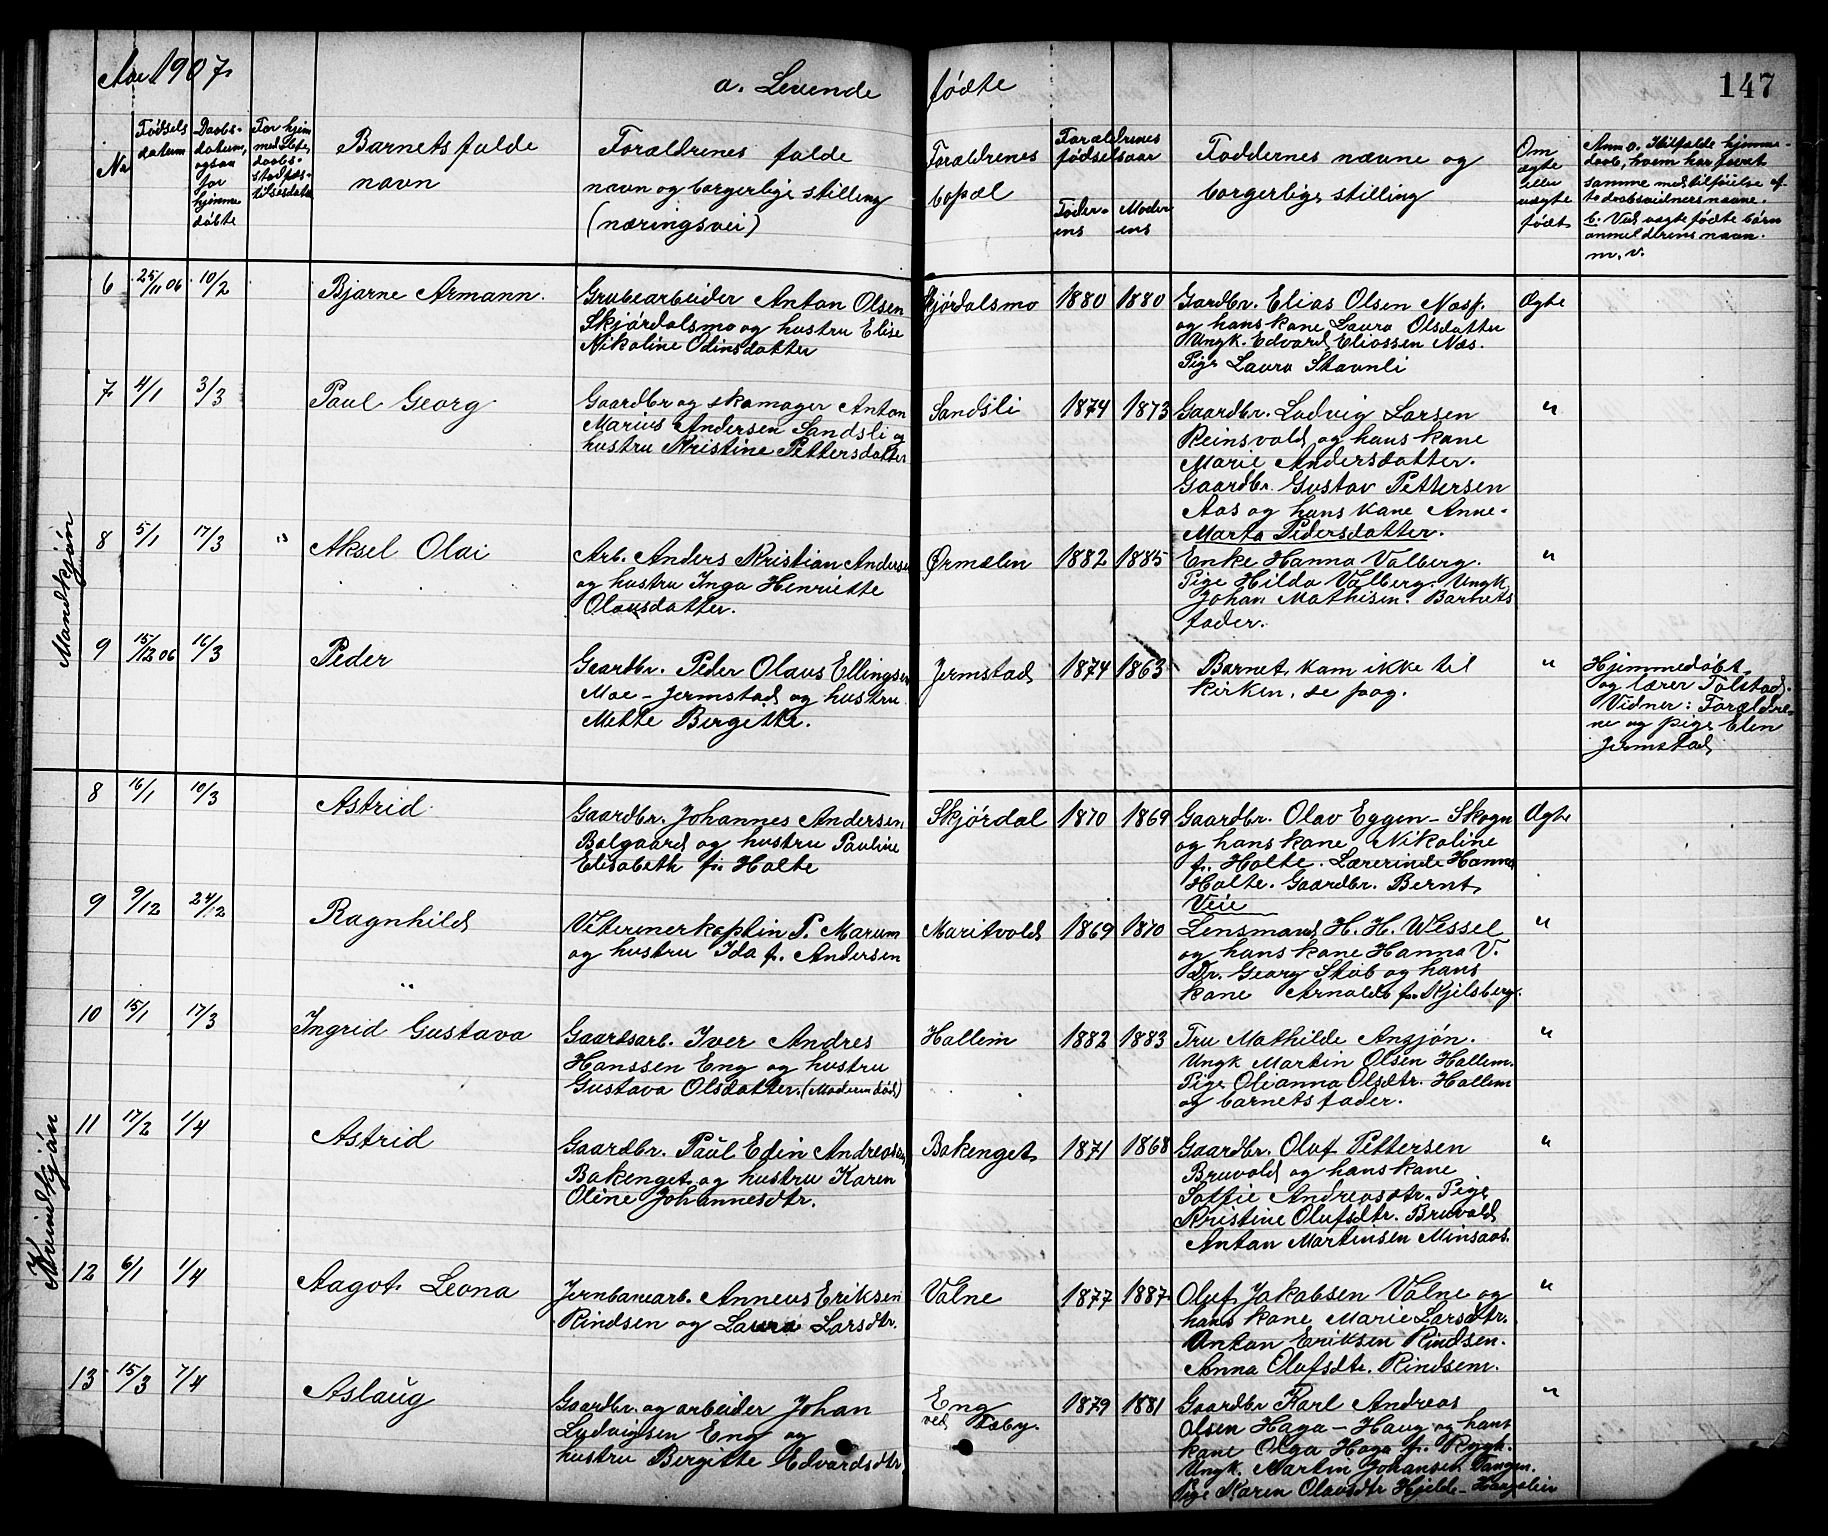 Aar 1907.
a. Levende fødte
147
No
Fødsels datum
Daabs-datum, ogsaa for hjemme døbte
Barnets fulde navn
Forældrenes fulde navn og borgerlige stilling (næringsvei)
Forældrenes bopæl
Forældrenes fødselsaar
Faderens
Moderens
Faddernes navne og borgerlige stilling
Om ægte eller uægte født
Mandkjøn
6 25/11 06 10/2 Bjarne Armann.
Grubearbeider Anton Olsen
Skjørdalsmo og hustru Elise
Nikoline Odinsdatter
Skjørdalsmo 1880 1880
Gardbr. Elias Olsen Næsp.
og hans kone Laura Olsdatter
Ungk. Edvard Eliassen Næs.
Pige Laura Stavnli
Ægte
7 4/1 3/3 Paul Georg
Gaardbr og skomager Anton
Marius Andersen Sandsli og
hustru Kristine Pettersdatter
Sandsli 1874 1873
Gaardbr. Ludvig Larsen
Reinsvold og hans kone
Marie Andersdatter.
Gaardbr. Gustav Pettersen
Aas og hans kone Anne-
Marta Pedersdatter.
"
8 5/1 17/3 " Aksel Olai
Arb. Anders Kristian Andersen
og hustru Inga Henriette
Olausdatter.
Ørmælen 1882 1885
Enke Hanna Valberg.
Pige Hilda Valberg. Ungk.
Johan Mathisen. Barnets
fader.
"
9 15/12 06 16/3 Peder
Gaardbr. Peder Olaus Ellingsen
Moe - Jermstad og hustru
Mette Bergitte.
Jermstad 1874 1863
Barnet kom ikke til
kirken, se pag.
"
Hjemmedøbt
og lærer Tolstad.
Vidner: Forældre-
ne og pige Elen
Jermstad
Kvindkjøn
8 16/1 10/3 Astrid
Gaardbr. Johannes Andersen
Balgaard og hustru Pauline
Elisabeth f. Holte
Skjørdal 1870 1869
Gaardbr. Olav Eggen - Skogn
og hans kone Nikoline
f. Holte. Lærerinde Hanna
Holte. Gaardbr. Bernt
Veie
Ægte
9 9/12 24/2 Ragnhild
Veterinerkaptin P. Marum
og hustru Ida f. Andersen
Maritvold 1869 1870
Lensmand H. H. Wessel
og hans kone Hanna V.
Dr. Georg Stub og hans
kone Arnolda f. Kjelsberg.
"
10 15/1 17/3 Ingrid Gustava
Gaardsarb. Iver Andres
Hanssen Eng og hustru
Gustava Olsdatter. (Moderen død)
Hallem 1882 1883
Fru Mathilde Angjøn.
Ungk Martin Olsen Hallem.
Pige Olianna Olsdtr. Hallem
og barnets fader.
"
11 17/2 1/4 Astrid
Gaardbr. Paul Edin Andreassen
Bakenget og hustru Karen
Oline Johannesdtr.
Bakenget 1871 1868
Gaardbr. Oluf Pettersen
Bruvold og hans kone
Soffie Andreasdtr. Pige
Kristine Olufsdtr. Bruvold
Anton Martinsen Minsaas.
"
12 6/1 1/4 Aagot Leona
Jernbanearb. Anneus Eriksen
Rindsen og Laura Larsdtr.
Valne 1877 1887
Oluf Jakobsen Valne og
hans kone Marie Larsdtr.
Anton Eriksen Rindsen.
Anna Olufsdtr. Rindsem.
"
13 15/3 7/4 Aslaug
Gaardbr. og arbeider Johan
Ludvigsen Eng og
hustru Bergitte Edvardsdtr.
Eng
ved Faaby. 1879 1881
Gaardbr Karl Andreas
Olsen Haga - Haug og hans
kone Olga Haga f. Rygh.
Ungk. Martin Johansen Tangen.
Pige Karen Olausdtr Hjelde -
"